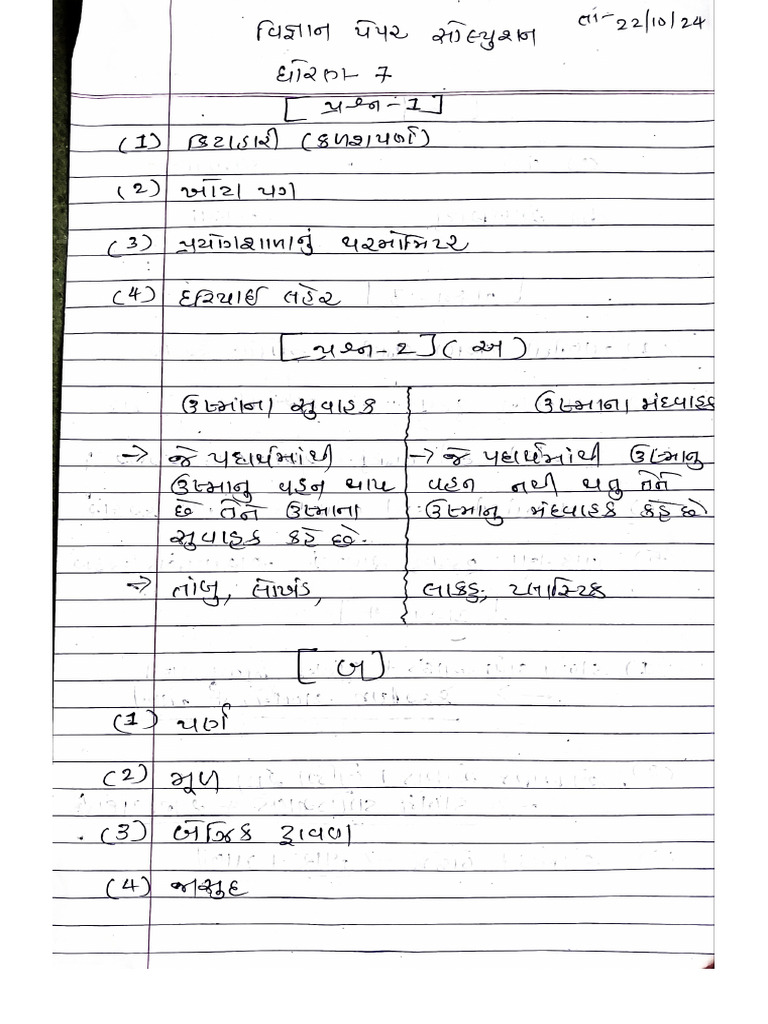 વિજ્ઞાન પેપર સોલ્યુશન તાં-22/10/24
ધોરણ 7
[ પ્રશ્ન-1]
(1) કિટાહારી (કળશપર્ણ)
(2) ખોટા પગ
(3) પ્રયોગશાળાનું થરમોમિટર
(4) દરિયાઈ લહેર
[પ્રશ્ન-2] (અ)
ઉષ્માના સુવાહક ઉષ્માના મંદવાહક
→ જે પદાર્થમાંથી → જે પદાર્થમાંથી ઉષ્માનુ
ઉષ્માનુ વહન થાય વહન નથી થતુ તેને
છે તેને ઉષ્માના ઉષ્માનુ મંદવાહક કહે છે
સુવાહક કહે છે.
→ તાંબુ, લોખંડ, લાકડુ, પ્લાસ્ટિક
[ બ ]
(1) પર્ણ
(2) મૂળ
(3) બેઝિક દ્રાવણ
(4) જાસુદ